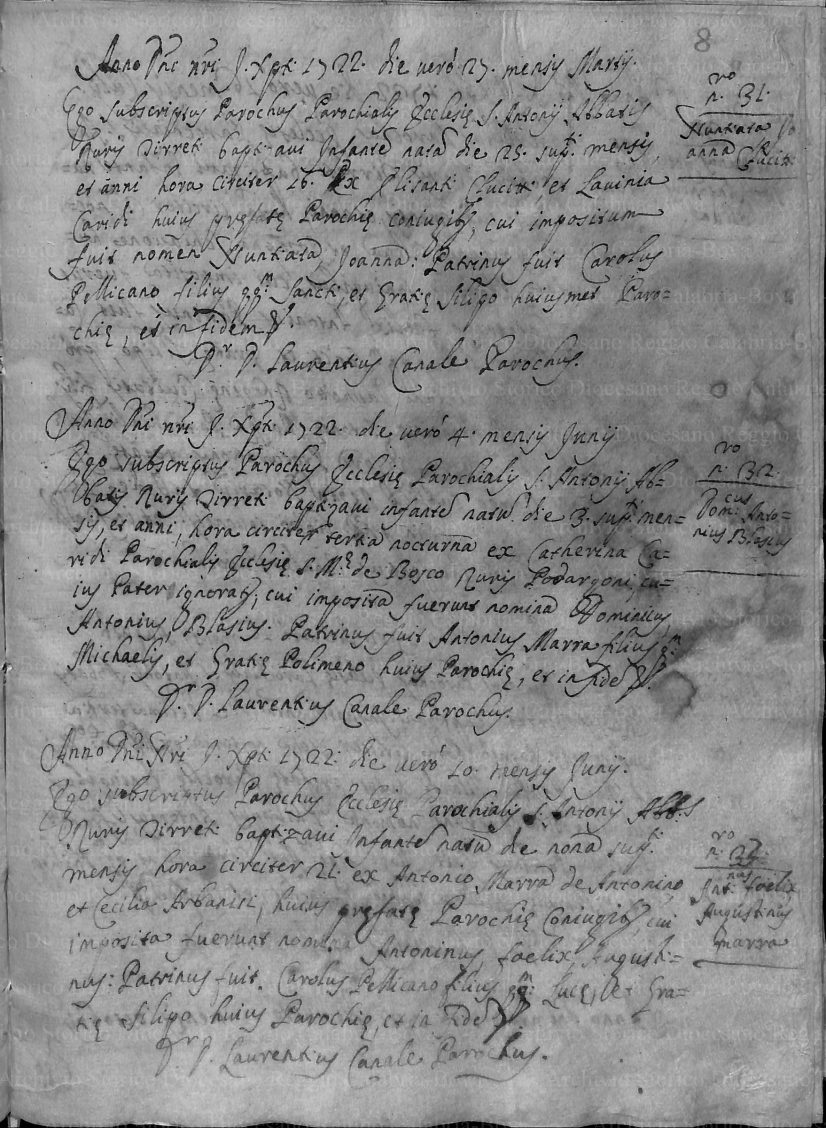 8
Anno Dñi nr̃i J. Xpti 1722. die verò 27. mensis Martij.
Ego subscriptus Parochus Parochialis Ecclesię S. Antonij Abbatis
Ruris Dirreti baptizavi Infante nata die 25. supti mensis,
et anni hora circiter 16. Ex et Lavinia
Caridi huius pręfatę Parochię coniugibus, cui impositum
fuit nomen Nuntiata, Joanna: Patrinus fuit Carolus
Pellicano filius qm Sancti, et Gratię Filipo huiusmet Paro=
chię, et in fidem
Dr D. Laurentius Canale Parochus.
n.ro 31.
Nuntiata Jo
anna
Anno Dñi nr̃i J. Xpti 1722. die verò 4. mensis Junij
Ego subscriptus Parochus Ecclesię Parochialis S. Antonij Ab=
batis Ruris Dirreti baptizavi infante natu die 3. supti men=
sis, et anni, hora circiter tertia nocturna ex Catherina Ca=
ridi Parochialis Ecclesię S. Mę de Bosco Ruris Podargoni, cu=
ius Pater ignorat, cui imposita fuerunt nomina Dominicus
Antonius, Blasius. Patrinus fuit Antonius Marra filius qm
Michaelis, et Gratię Polimeno huius Parochię, et in fide
Dr D. Laurentius Canale Parochus.
n.ro 32.
Dom:cus Anto=
nius Blasius
Anno Dñi Nr̃i J. Xpti 1722. die verò 10. mensis Junij.
Ego subscriptus Parochus Ecclesię Parochialis S. Antonij Abb.s
Ruris Dirreti baptizavi Infante natu de nona supti
mensis hora circiter 21. ex Antonio Marra de Antonino,
et Cecilia Arbaniti, huius pręfatę Parochię Coniugibus, cui
imposita fuerunt nomina Antoninus, Faelix, Augusti=
nus: Patrinus fuit. Carolus Pellicano filius qm: Lucę, et Gra=
tię Filipo huius Parochię, et in fide
Dr D. Laurentius Canale Parochus.
n.ro 33.
Ant:nus Faelix
Augustinus
Marra